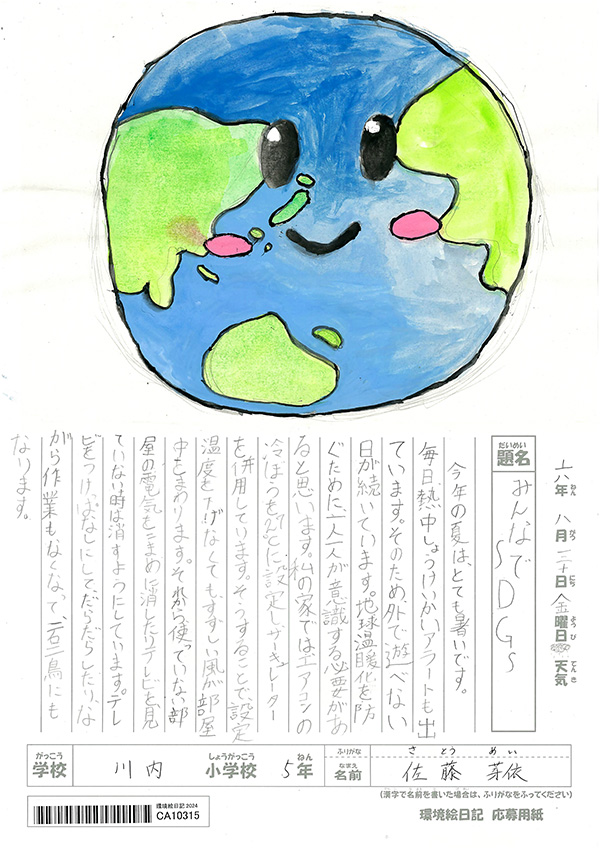 六年 八月 三十日 金曜日 天気
だいめい
題名
みんなで
SDGs
今年の夏は、とても暑いです。
毎日、熱中しょうけいかいアラートも出
ています。そのため外で遊べない
日が続いています。地球温暖化を防
ぐために、一人一人が意識する必要があ
ると思います。私の家ではエアコンの
冷ぼうを27℃に設定しサーキュレーター
を併用しています。そうすることで、設定
温度を下げなくてもすずしい風が部屋
中をまわります。それから、使っていない部
屋の電気もこまめに消したりテレビを見
ていない時は消すようにしています。テレ
ビをつけっぱなしにして、だらだらしたり、な
がら作業もなくなって、一石二鳥にも
なります。
がっこう
学校 川内 小学校 5年
しょうがっこう ねん
ふりがな さとう めい
なまえ
名前 佐藤 芽依
(漢字で名前を書いた場合は、ふりがなをふってください)
環境絵日記 2024
CA10315
環境絵日記 応募用紙